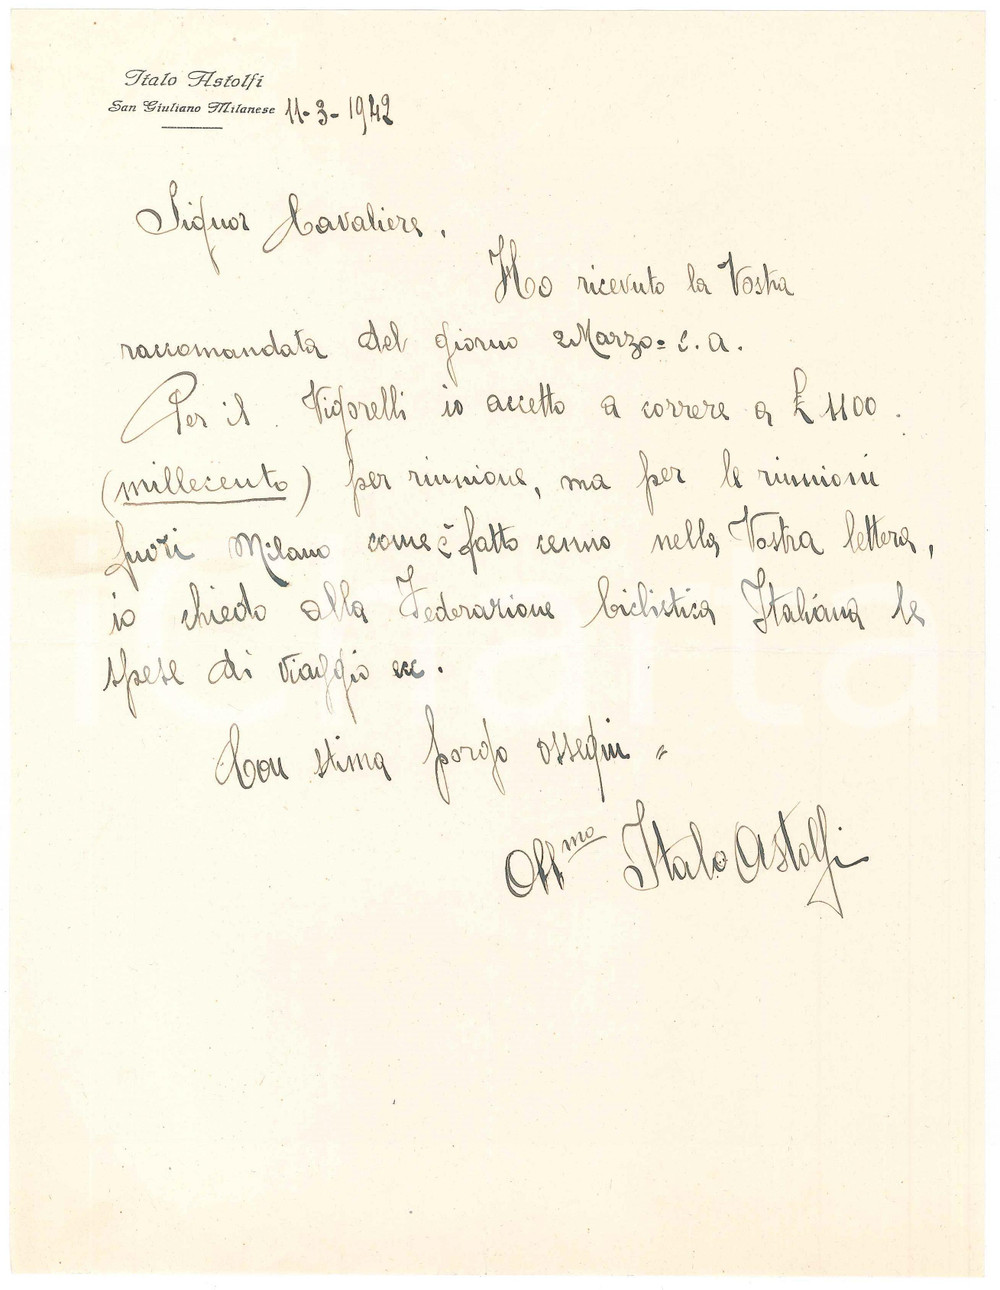 Italo Astolfi
San Giuliano Milanese 11-3-1942
Signor Cavaliere,
Ho ricevuto la Vostra
raccomandata del giorno 2 Marzo = c. a.
Per il Vigorelli io accetto a correre a £ 1100.
(millecento) per riunione, ma per le riunioni
fuori Milano come è fatto cenno nella Vostra lettera,
io chiedo alla Federazione Ciclistica Italiana le
spese di viaggio ecc.
Con stima porgo ossequi =
Obb.mo Italo Astolfi
iCharta